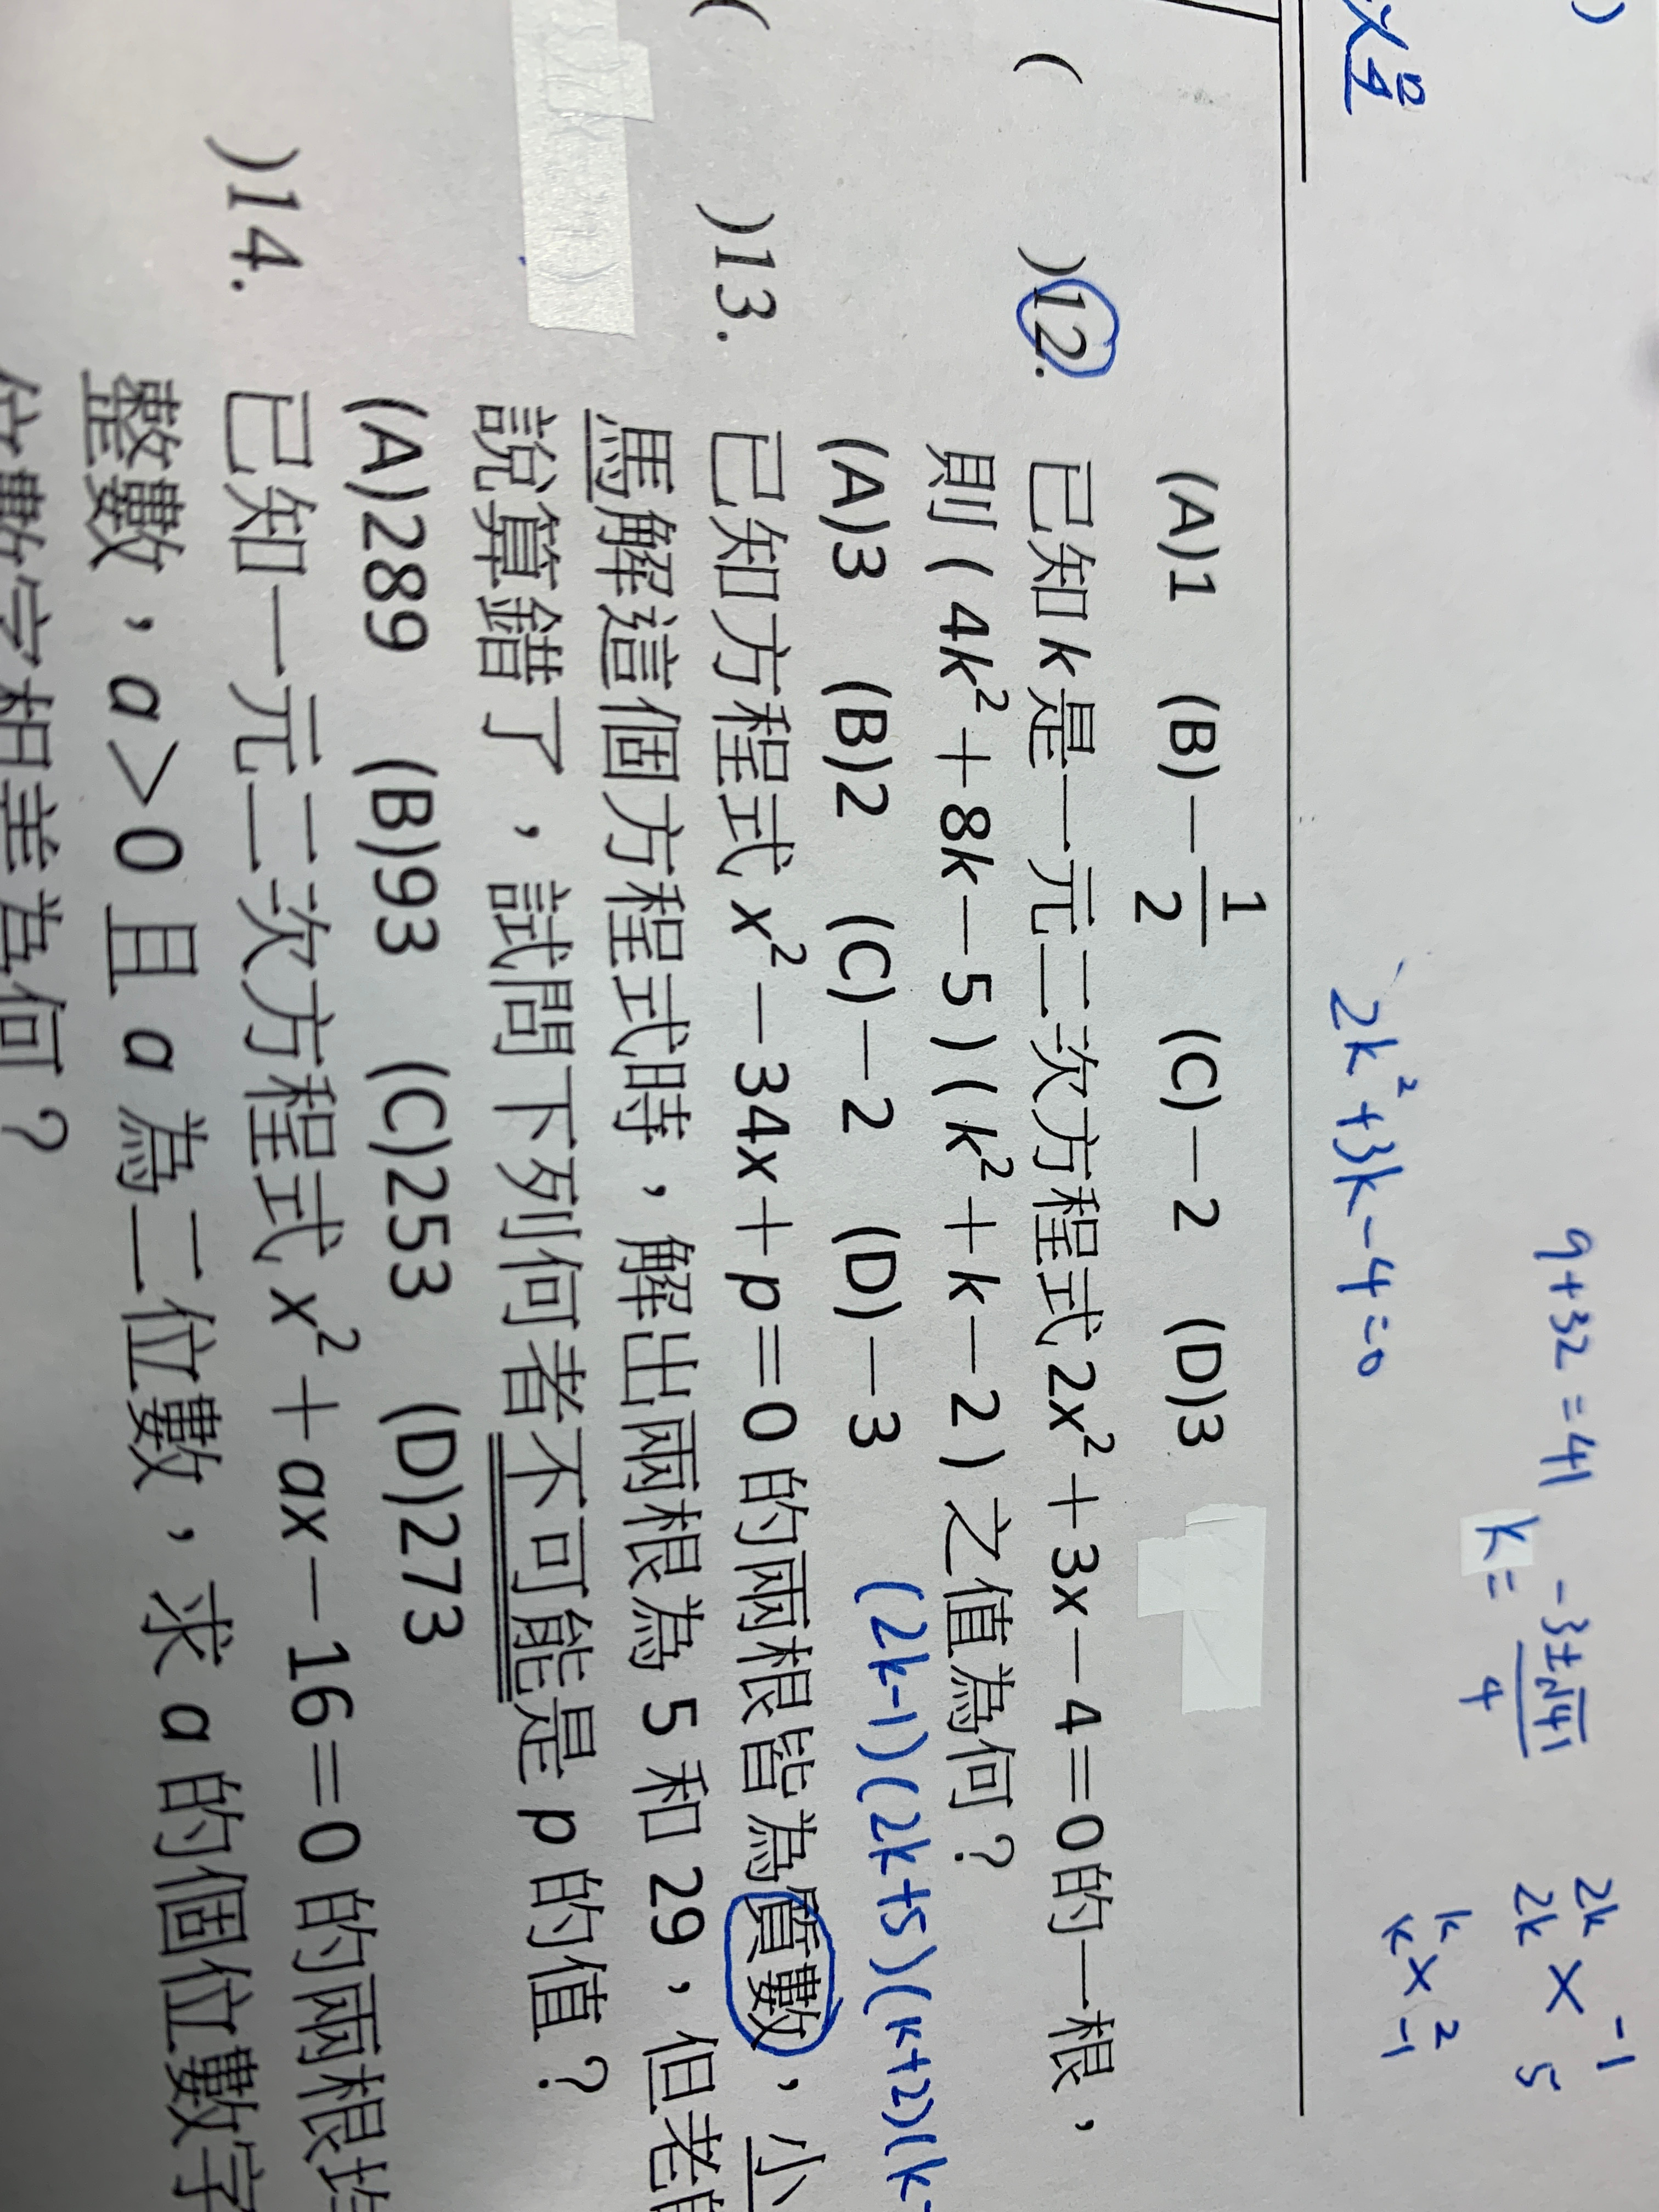 9+32=41
k=(-3±√41)/4
2k -1
2k × 5
k 2
k × -1
2k²+3k-4=0
(A)1 (B)-1/2 (C)-2 (D)3
( )12. 已知k是一元二次方程式2x²+3x-4=0的一根,
則(4k²+8k-5)(k²+k-2)之值為何?
(A)3 (B)2 (C)-2 (D)-3
(2k-1)(2k+5)(k+2)(k-
( )13. 已知方程式x²-34x+p=0的兩根皆為質數,小
馬解這個方程式時,解出兩根為5和29,但老
說算錯了,試問下列何者不可能是p的值?
(A)289 (B)93 (C)253 (D)273
)14. 已知一元二次方程式x²+ax-16=0的兩根
整數,a>0且a為二位數,求a的個位數字
位數字相差為何?